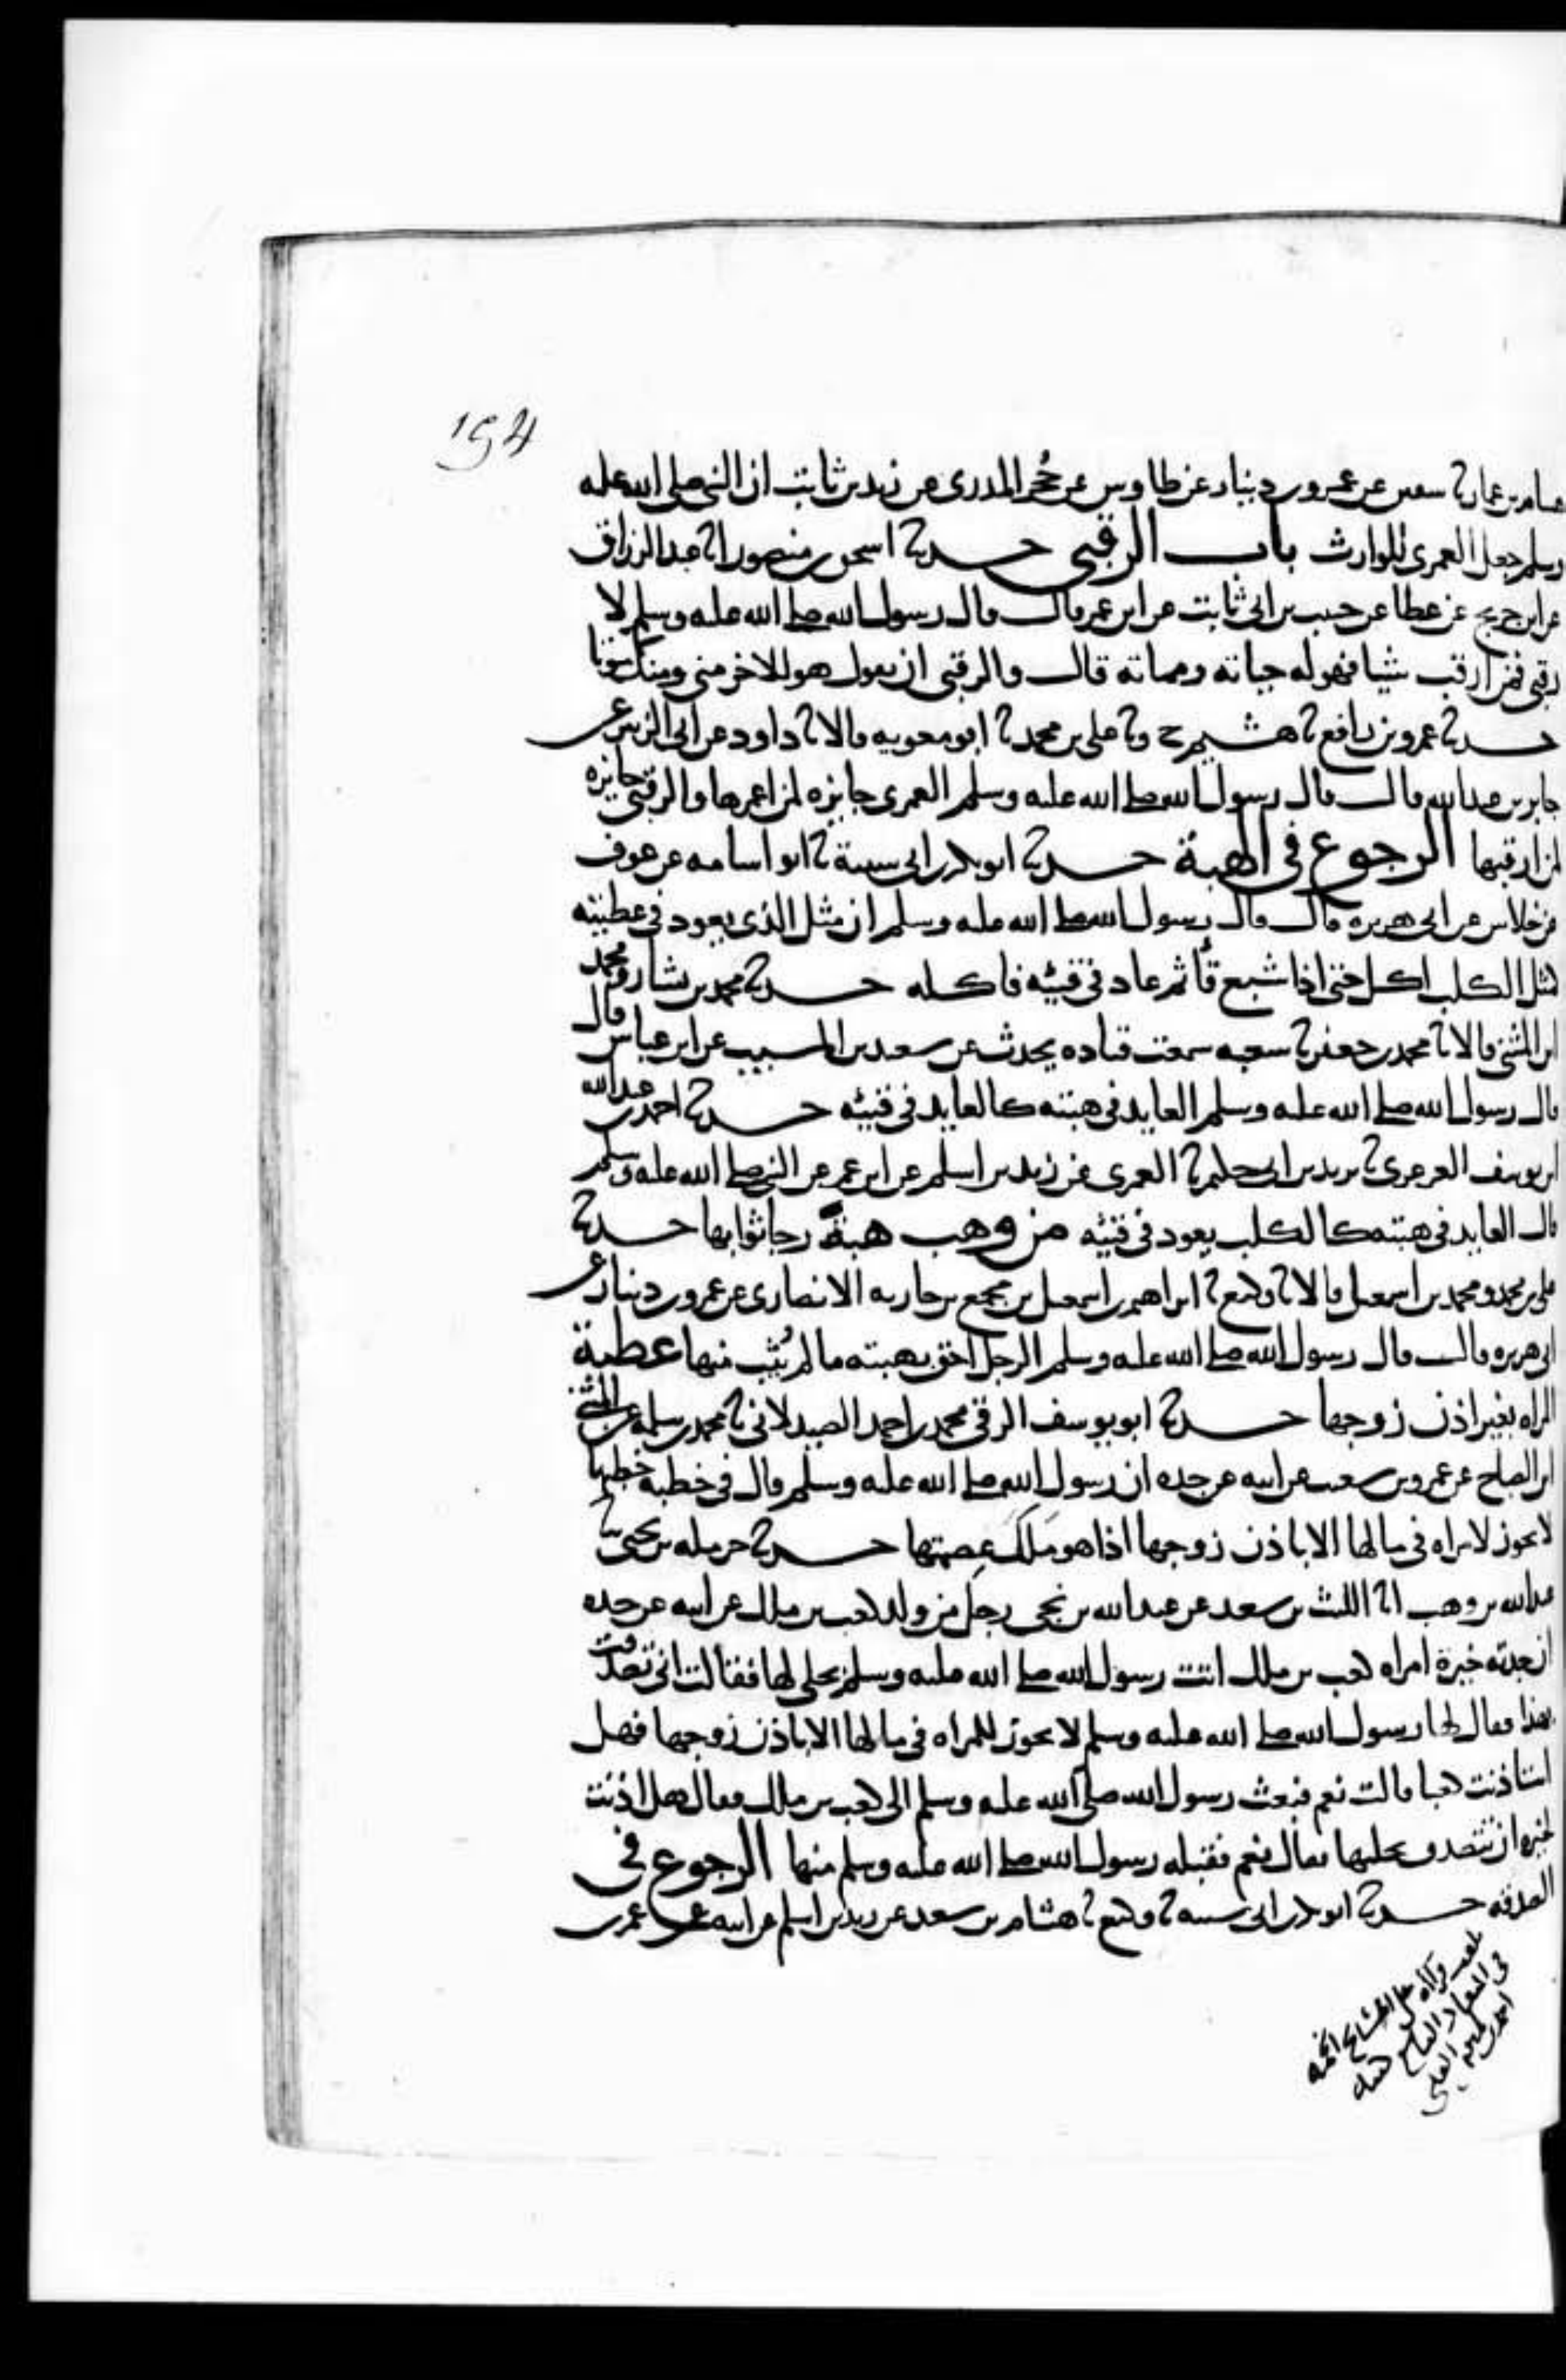 154
هشام بن عمار ثنا سفين عن عمرو بن دينار عن طاوس عن حُجر المدرى عن زيد بن ثابت ان النبي صلى الله عليه
وسلم جعل العمرى للوارث باب الرقبى حدثنا اسحق بن منصور انا عبد الرزاق
عن ابن جريج عن عطا عن حبيب بن ابى ثابت عن ابن عمر قال قال رسول الله صلى الله عليه وسلم لا
رقبى فمن ارقب شيا فهو له حياته ومماته قال والرقبى ان يقول هو للاخر منى ومنك موتا
حدثنا عمرو بن رافع ثنا هشيم ح وثنا على بن محمد ثنا ابو معويه قالا ثنا داود عن ابى الزبير عن
جابر بن عبد الله قال قال رسول الله صلى الله عليه وسلم العمرى جايزه لمن اعمرها والرقبى جايزه
لمن ارقبها الرجوع فى الهبة حدثنا ابو بكر بن ابى شيبة ثنا ابو اسامه عن عوف
عن خلاس عن ابى هريره قال قال رسول الله صلى الله عليه وسلم ان مثل الذى يعود فى عطيته
كمثل الكلب اكل حتى اذا شبع قأ ثم عاد فى قيئه فاكله حدثنا محمد بن بشار ومحمد
ابن المثنى قالا ثنا محمد بن جعفر ثنا شعبه سمعت قتاده يحدث عن سعيد بن المسيب عن ابن عباس قال
قال رسول الله صلى الله عليه وسلم العايد فى هبته كالعايد فى قيئه حدثنا احمد بن عبد الله
ابن يوسف العرعرى ثنا يزيد بن ابى حكيم ثنا العمرى عن زيد بن اسلم عن ابن عمر عن النبى صلى الله عليه وسلم
قال العايد فى هبته كالكلب يعود فى قيئه من وهب هبةً رجا ثوابها حدثنا
على بن محمد ومحمد بن اسمعيل قالا ثنا وكيع ثنا ابراهيم بن اسمعيل بن مجمع بن جاريه الانصارى عن عمرو بن دينار عن
ابى هريره قال قال رسول الله صلى الله عليه وسلم الرجل احق بهبته ما لم يُثب منها عطية
المراه بغير اذن زوجها حدثنا ابو يوسف الرقى محمد بن احمد الصيدلانى ثنا محمد بن سلمه عن المثنى
ابن الصباح عن عمرو بن شعيب عن ابيه عن جده ان رسول الله صلى الله عليه وسلم قال فى خطبه خطبها
لا يجوز لامراه فى مالها الا باذن زوجها اذا هو مَلَكَ عِصمتها حدثنا حرمله بن يحيى ثنا
عبد الله بن وهب انا الليث بن سعد عن عبد الله بن يحيى رجل من ولد كعب بن ملك عن ابيه عن جده
ان جدته خيرة امراه كعب بن ملك اتت رسول الله صلى الله عليه وسلم بحلى لها فقالت انى تصدقت
بهذا فقال لها رسول الله صلى الله عليه وسلم لا يجوز للمراه فى مالها الا باذن زوجها فهل
استاذنت كعبا قالت نعم فبعث رسول الله صلى الله عليه وسلم الى كعب بن ملك فقال هل اذنت
لخيره ان تتصدق بحليها فقال نعم فقبله رسول الله صلى الله عليه وسلم منها الرجوع فى
الصدقه حدثنا ابو بكر بن ابى شيبه ثنا وكيع ثنا هشام بن سعد عن زيد بن اسلم عن ابيه عن عمر بن
بلغت قرأه على المشايخ
فى الميعاد